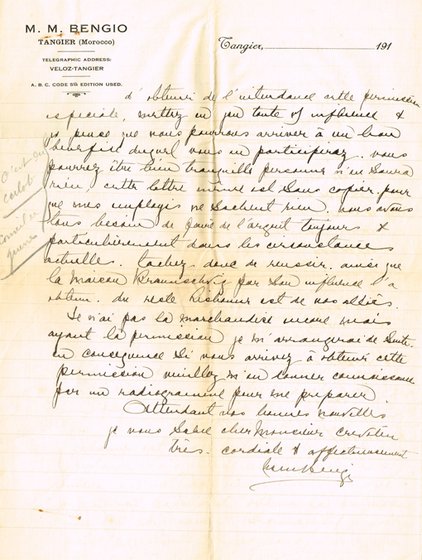 M. M. BENGIO
TANGIER (Morocco)
TELEGRAPHIC ADDRESS:
VELOZ-TANGIER
A. B. C. CODE 5TH EDITION USED.
Tangier, 191
d'obtenir de l'intendance cette permission
speciale, mettez en jeu toute influence &
je pense que nous pourrons arriver à un bon
benefice duquel vous en participirez. vous
pourrez être bien tranquille personne n'en saura
rien, cette lettre même est sans copier, pour
que mes employés ne sachent rien. nous avons
tous besoin de faire de l'argent toujours &
particulièrement dans les circonstances
actuelles. tachez donc de reussir. ainsi que
la maison Braunschvig par son influence l'a
obtenu. du reste est de nos alliés.
Je n'ai pas la marchandise encore mais
ayant la permission je m'arrangerai de suite.
en consequence si vous arrivez à obtenir cette
permission veuillez m'en donner connaissance
par un radiogramme pour me preparer.
Attendant vos bonnes nouvelles
je vous salue cher Monsieur
très cordiale & affectueusement
C'est un
Conseil de
guerre